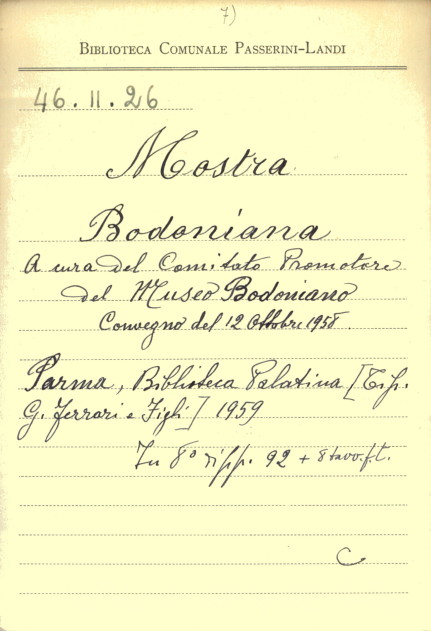 7)
BIBLIOTECA COMUNALE PASSERINI-LANDI
46.II.26
Mostra
Bodoniana
A cura del Comitato Promotore
del Museo Bodoniano
Convegno del 12 Ottobre 1958.
Parma, Biblioteca Palatina [Tip.
G. Ferrari e Figli] 1959
In 8° di pp. 92 + 8 tavv. f.t.
C